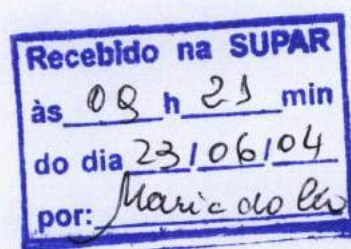 Recebido na SUPAR
às 09 h 21 min
do dia 23/06/04
por: Maria do